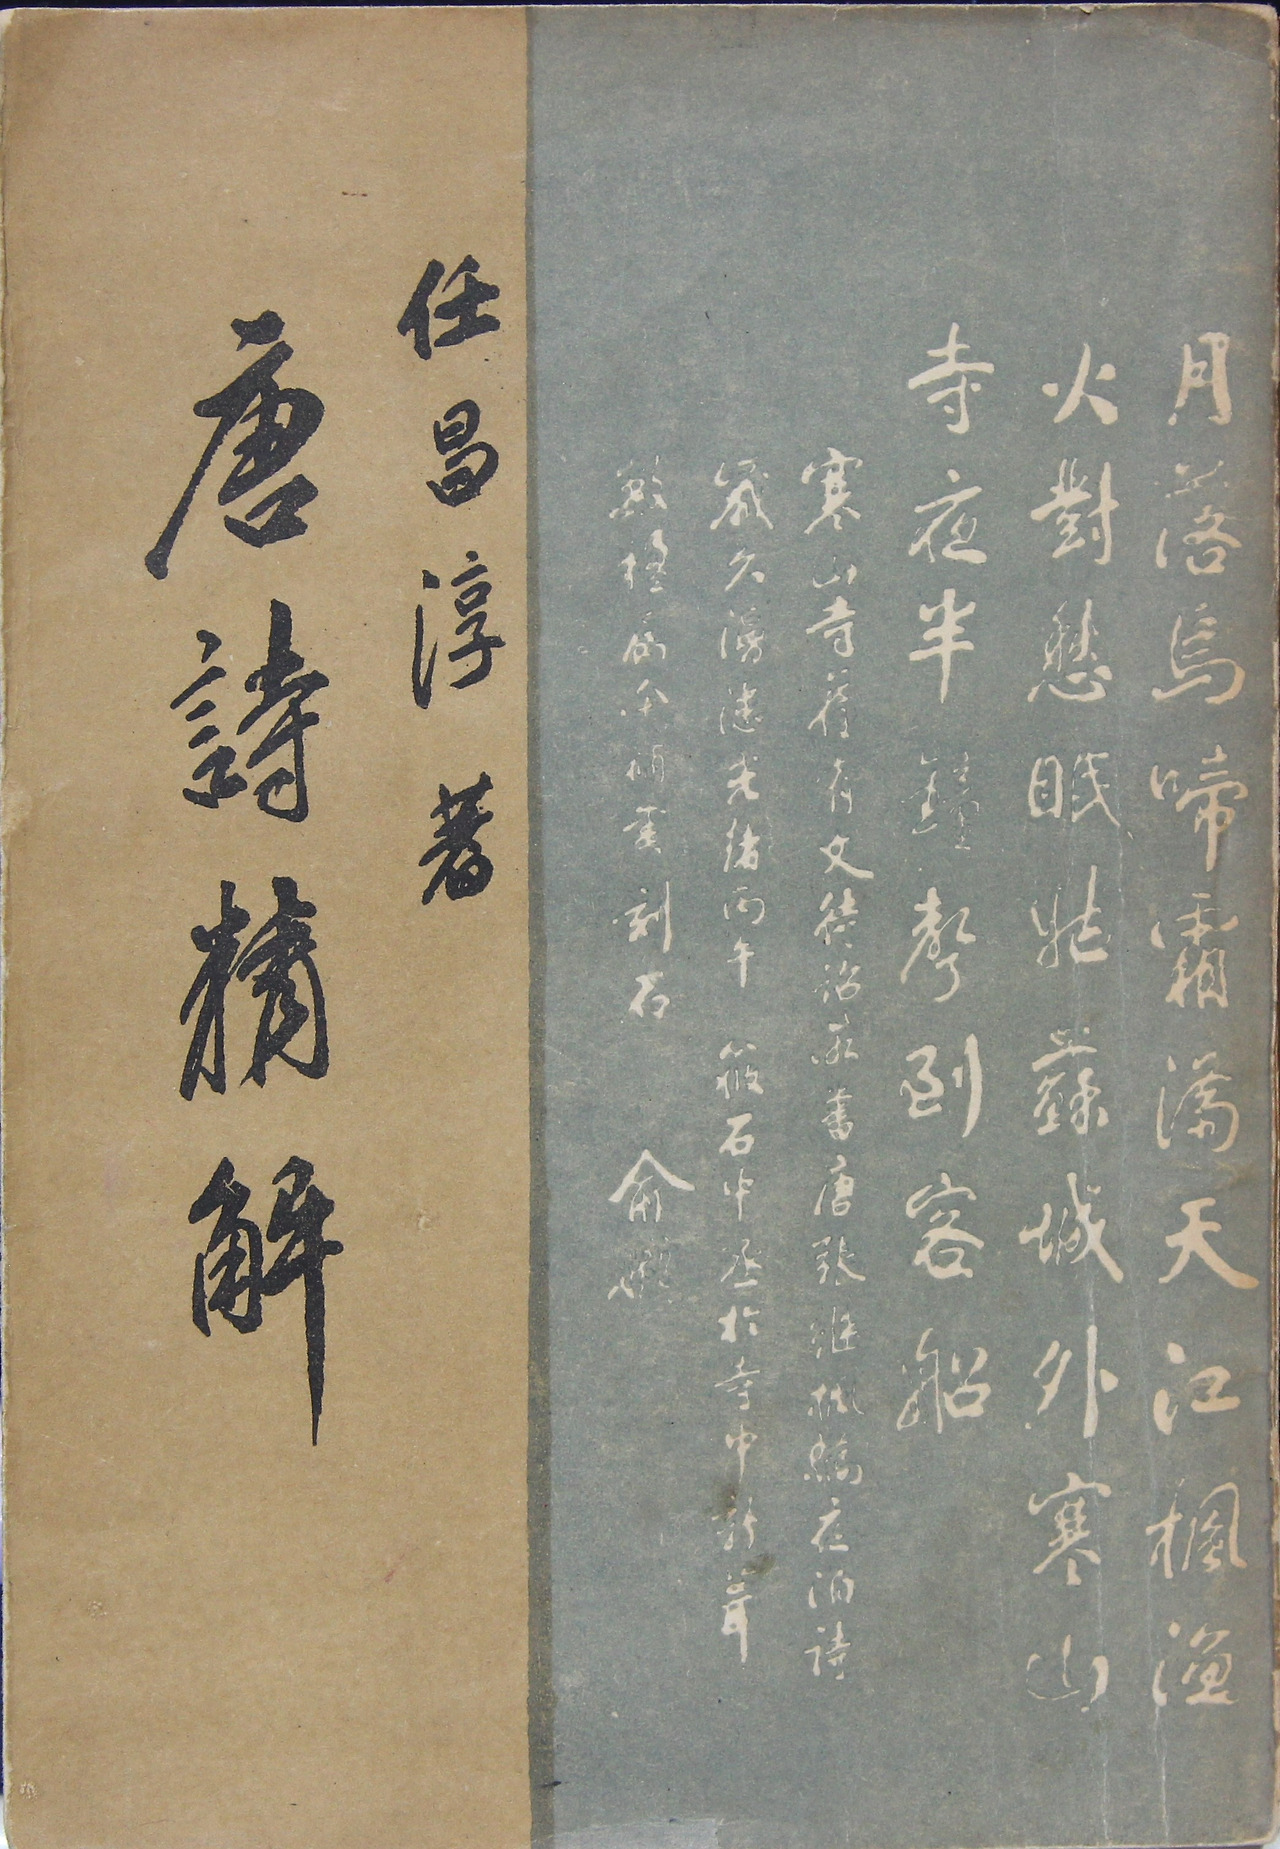 月落烏啼霜滿天江楓漁
火對愁眠姑蘇城外寒山
寺夜半鐘聲到客船
寒山寺舊有文待詔所書唐張繼楓橋夜泊詩
歲久漫漶光緒丙午 筱石中丞於寺中新葺
數楹屬余補書刻石 俞樾
任昌淳 著
唐詩精解